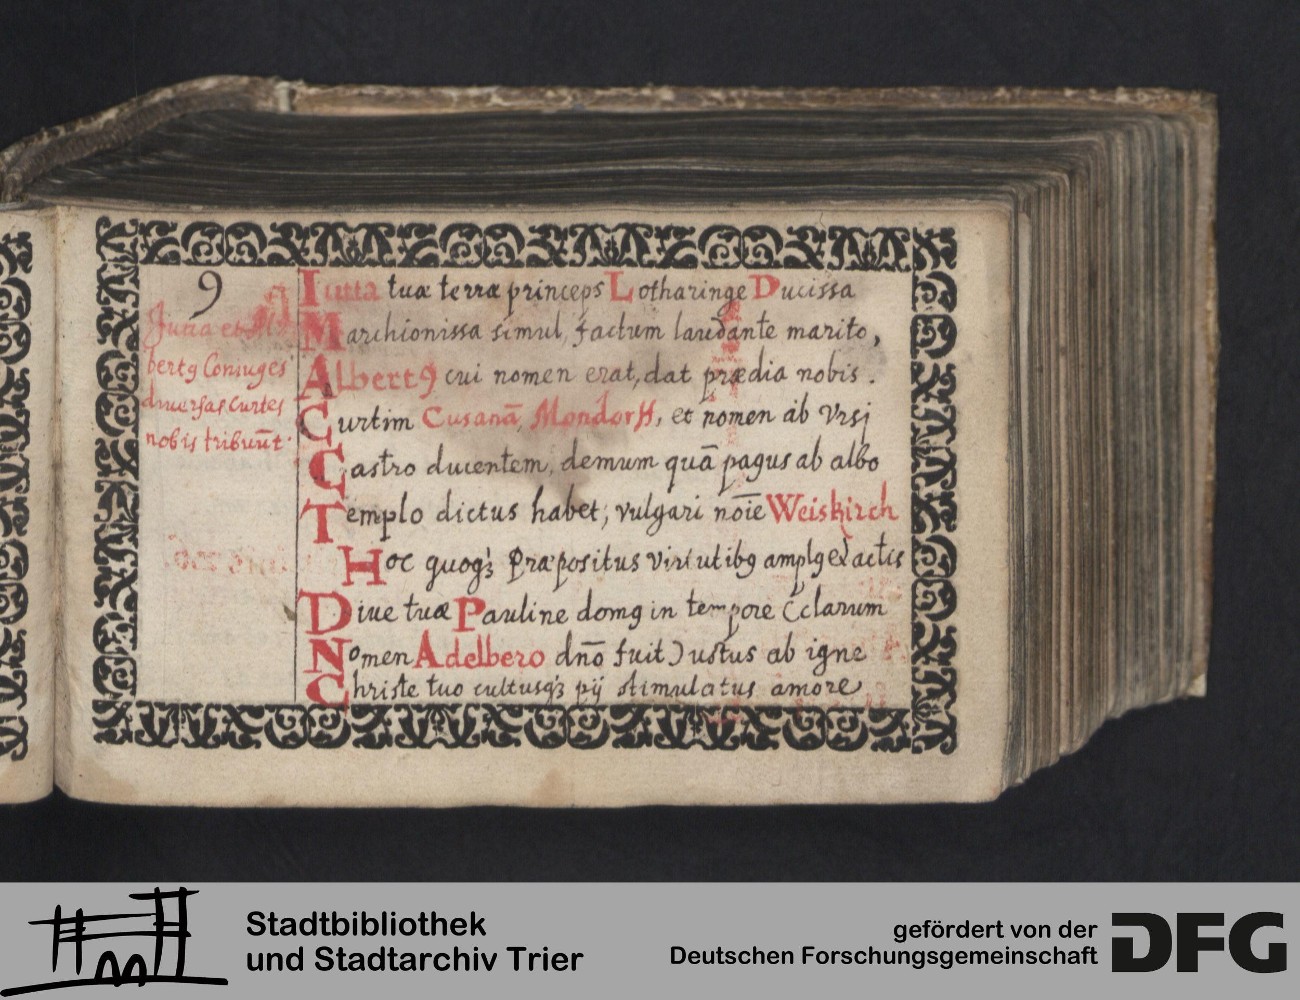 9
Jutta et Al
bertꝯ Coniuges
diuersas curtes
nobis tribuūt.
Iutta tuæ terræ princeps Lotharinge Ducissa
Marchionissa simul, factum laudante marito,
Albertꝯ cui nomen erat, dat prædia nobis.
Curtim Cusanā, Mondorff, et nomen ab Vrsj
Castro ducentem, demum quā pagus ab albo
Templo dictus habet, vulgari nōīe Weiskirch
Hoc quoqꝫ Præpositus virtutibꝯ amplꝯ et actis
Diue tuæ Pauline domꝯ in tempore
Nomen Adelbero dnō fuit) ustus ab igne
Christe tuo cultusqꝫ pij stimulatus amore
Stadtbibliothek
und Stadtarchiv Trier
gefördert von der
Deutschen Forschungsgemeinschaft
DFG